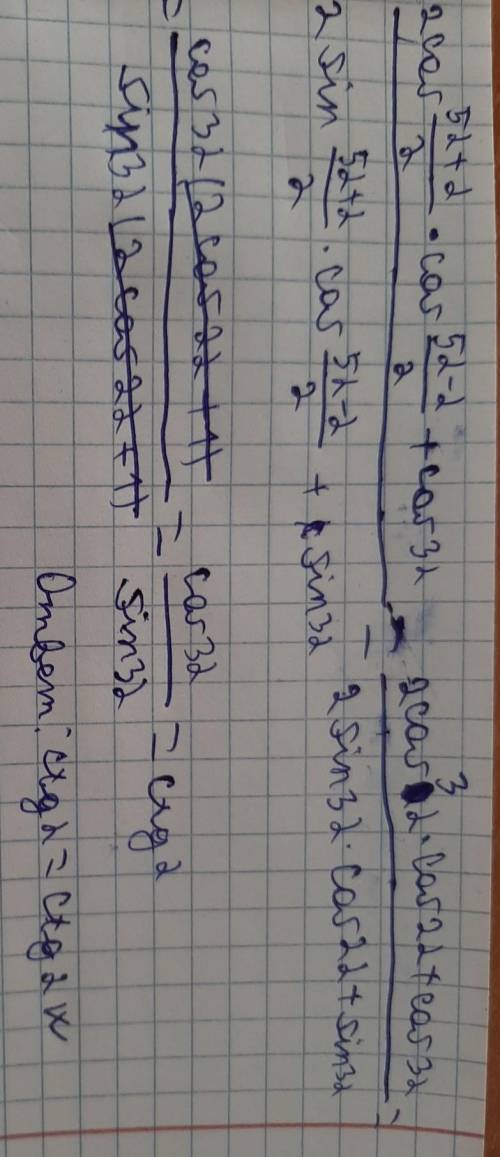 2cos (5α+α)/2 · cos (5α-α)/2 + cos3α / 2sin (5α+α)/2 · cos (5α-α)/2 + sin3α = 2cos3α · cos2α + cos3α / 2sin3α · cos2α + sin3α =
= cos3α(2cos2α+1) / sin3α(2cos2α+1) = cos3α / sin3α = ctgα
Ответ: ctgα = ctg2x